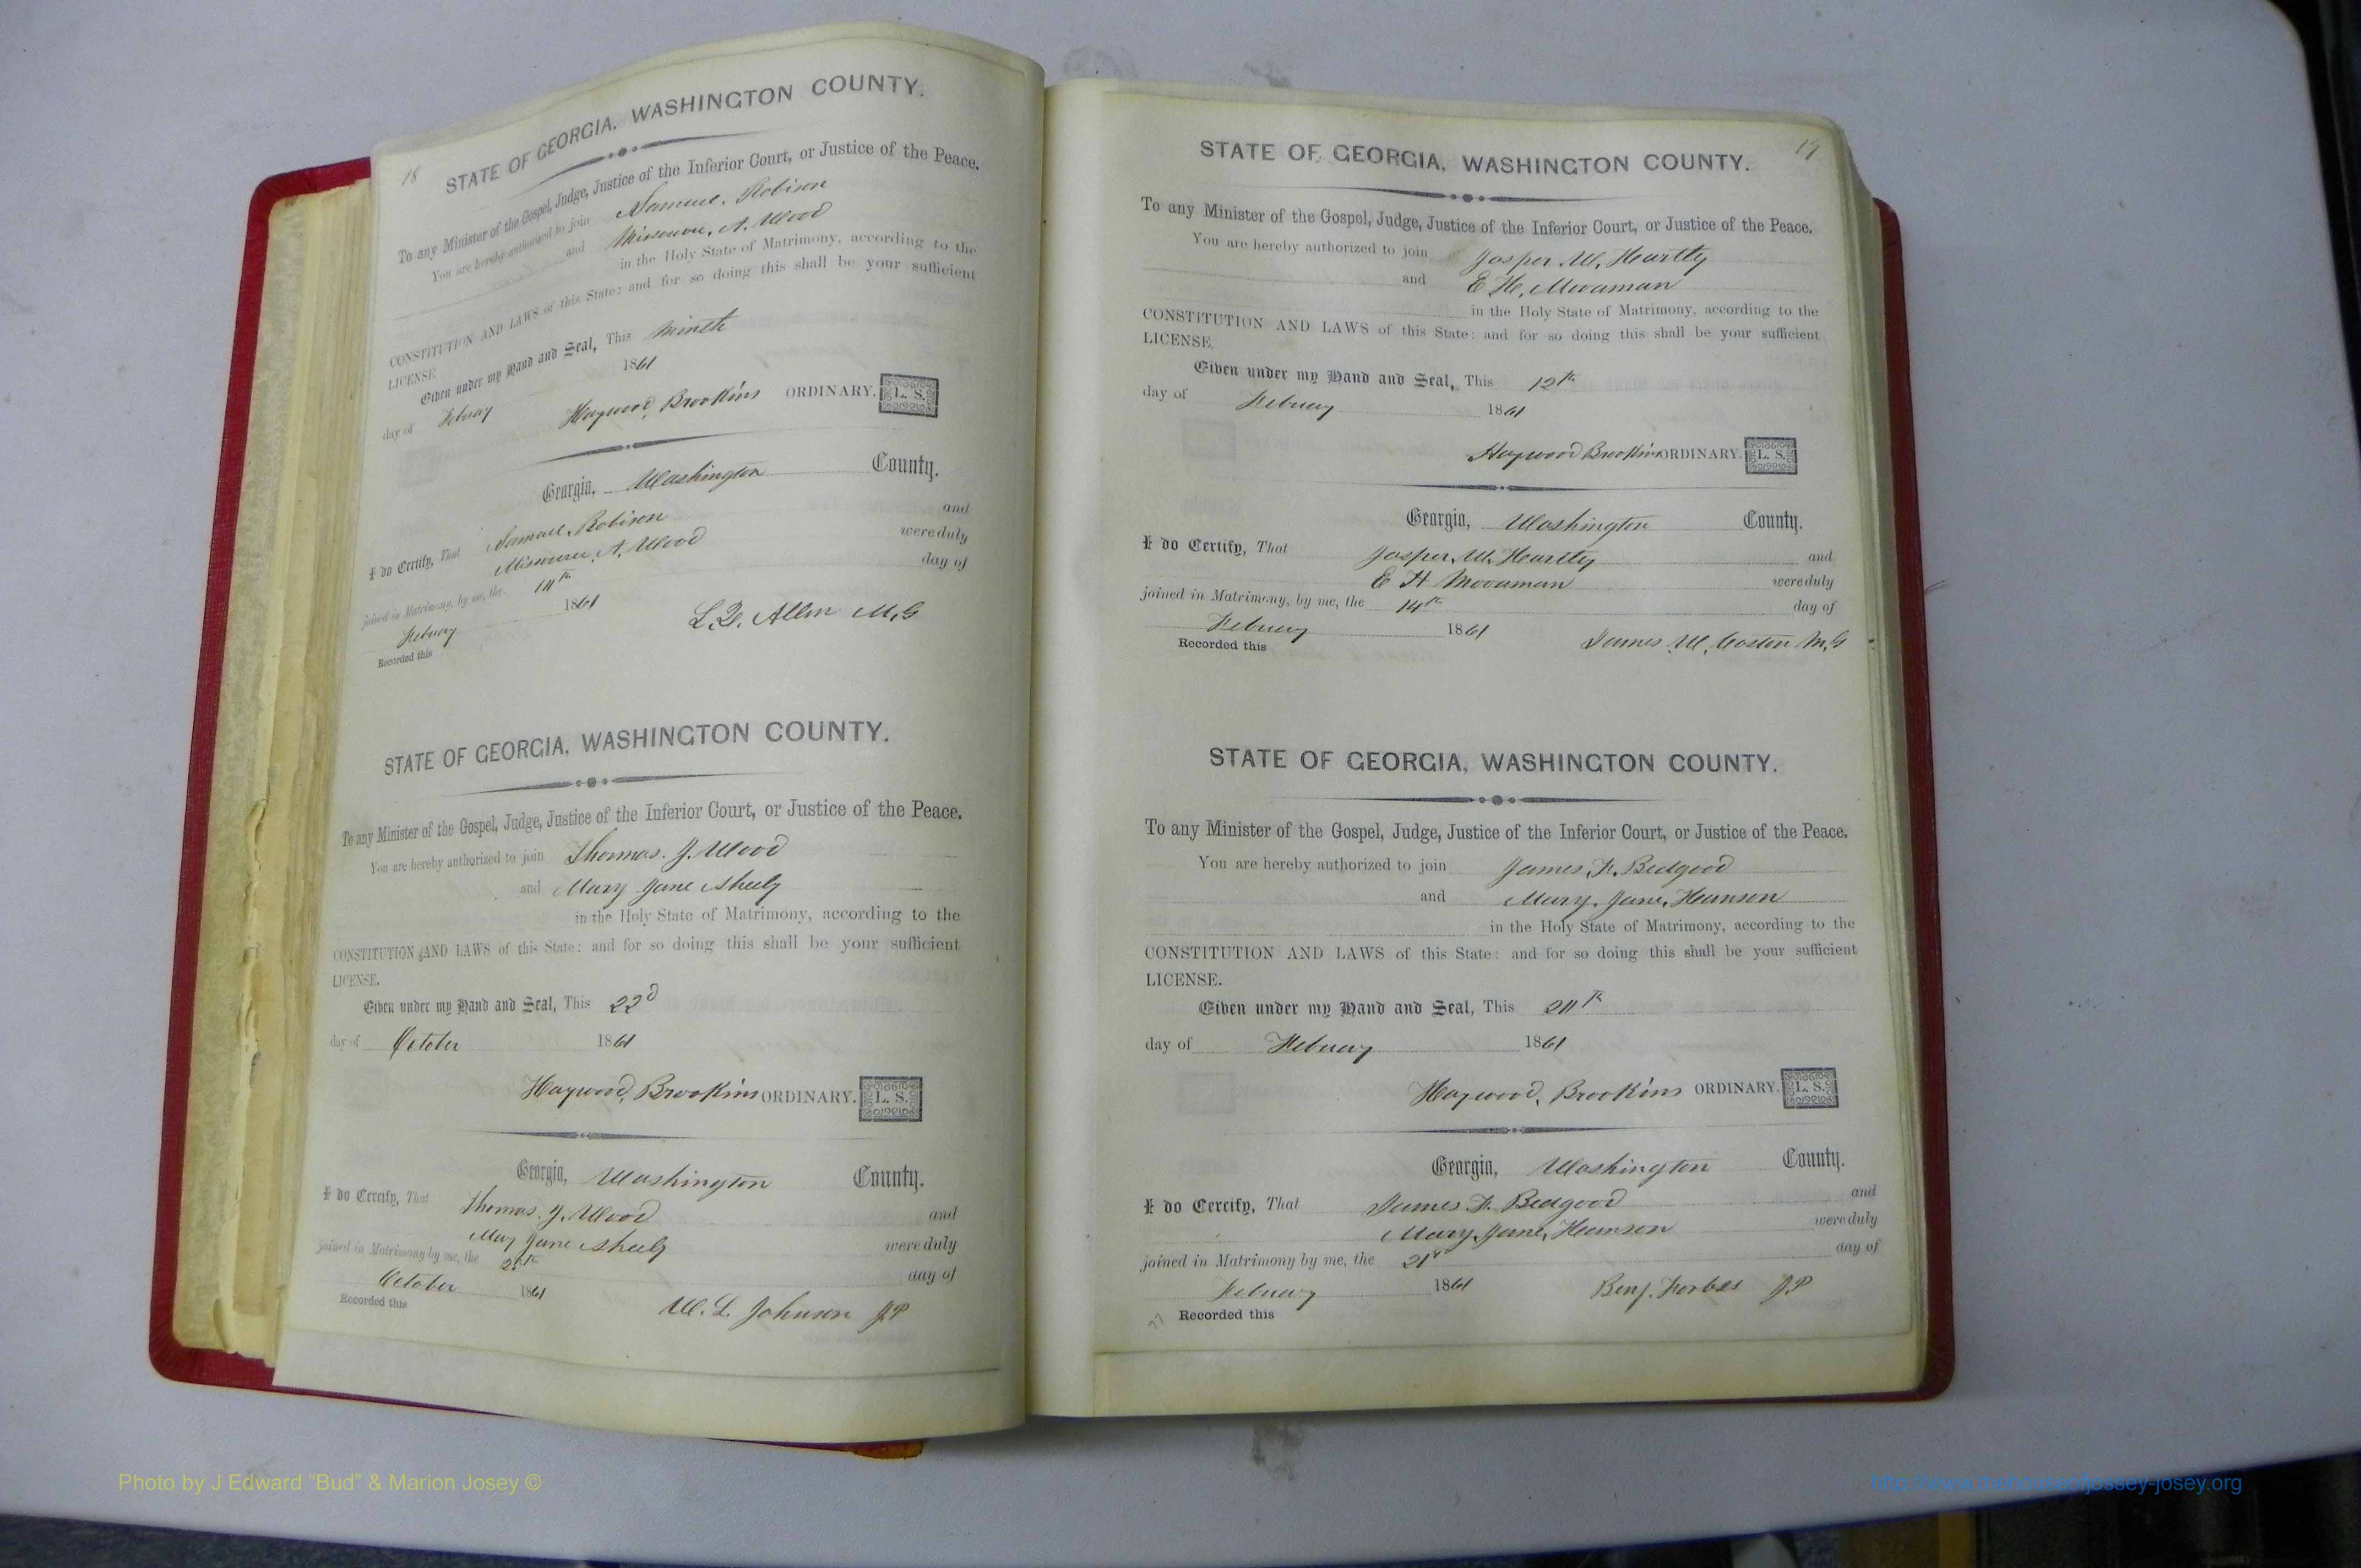 18
STATE OF GEORGIA, WASHINGTON COUNTY.
To any Minister of the Gospel, Judge, Justice of the Inferior Court, or Justice of the Peace.
You are hereby authorized to join Samuel, Robison
and Missouri, A. Wood
in the Holy State of Matrimony, according to the
CONSTITUTION AND LAWS of this State: and for so doing this shall be your sufficient
LICENSE
Given under my Hand and Seal, This Nineth
day of Febuary 1861
Haywood, Brookins ORDINARY. L. S.
Georgia, Washington County.
I do Certify, That Samuel, Robison and
Missouri, A, Wood were duly
joined in Matrimony, by me, the day of
Febuary 1861 Allen M.G
Recorded this
STATE OF GEORGIA, WASHINGTON COUNTY.
To any Minister of the Gospel, Judge, Justice of the Inferior Court, or Justice of the Peace.
You are hereby authorized to join Thomas. J. Wood
and Mary Jane
in the Holy State of Matrimony, according to the
CONSTITUTION AND LAWS of this State: and for so doing this shall be your sufficient
LICENSE.
Given under my Hand and Seal, This 22d
day of October 1861
Haywood, Brookins ORDINARY. L. S.
Georgia, Washington County.
I do Cercify, That Thomas. J. Wood and
Mary Jane were duly
joined in Matrimony by me, the day of
October 1861 W. L. Johnson JP
Recorded this
19
STATE OF GEORGIA, WASHINGTON COUNTY.
To any Minister of the Gospel, Judge, Justice of the Inferior Court, or Justice of the Peace.
You are hereby authorized to join Jasper W. Heartly
and E H, Mooaman
in the Holy State of Matrimony, according to the
CONSTITUTION AND LAWS of this State: and for so doing this shall be your sufficient
LICENSE.
Given under my Hand and Seal, This 12th
day of Febuary 1861
Haywood Brookins ORDINARY. L. S.
Georgia, Washington County.
I do Certify, That Jasper W. Heartly and
E H Mooaman were duly
joined in Matrimony, by me, the 14th day of
Febuary 1861 James W. M,G
Recorded this
STATE OF GEORGIA, WASHINGTON COUNTY.
To any Minister of the Gospel, Judge, Justice of the Inferior Court, or Justice of the Peace.
You are hereby authorized to join James, F. Bedgood
and Mary, Jane, Hanson
in the Holy State of Matrimony, according to the
CONSTITUTION AND LAWS of this State: and for so doing this shall be your sufficient
LICENSE.
Given under my Hand and Seal, This
day of Febuary 1861
Haywood, Brookins ORDINARY. L. S.
Georgia, Washington County.
I do Cercify, That James F. Bedgood and
Mary, Jane, Hanson were duly
joined in Matrimony by me, the 21st day of
Febuary 1861 Benj. Forbes JP
Recorded this
Photo by J Edward “Bud” & Marion Josey ©
http://www.thehouseofjossey-josey.org